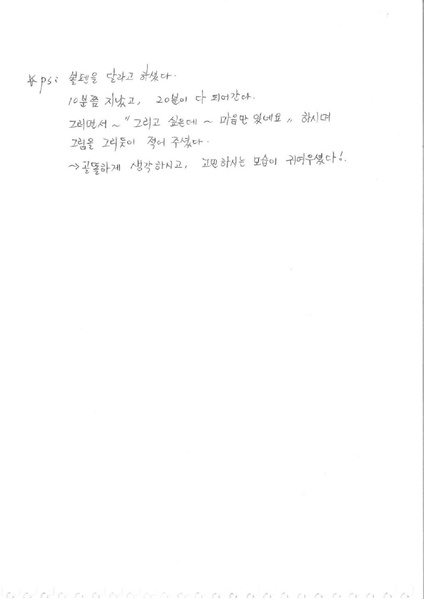 ※ps: 볼펜을 달라고 하셨다.
10분쯤 지났고, 20분이 다 되어간다.
그러면서 ~ "그리고 싶은데 ~ 마음만 있네요" 하시며
그림을 그리듯이 적어 주셨다.
→ 골똘하게 생각하시고, 고민하시는 모습이 귀여우셨다!.